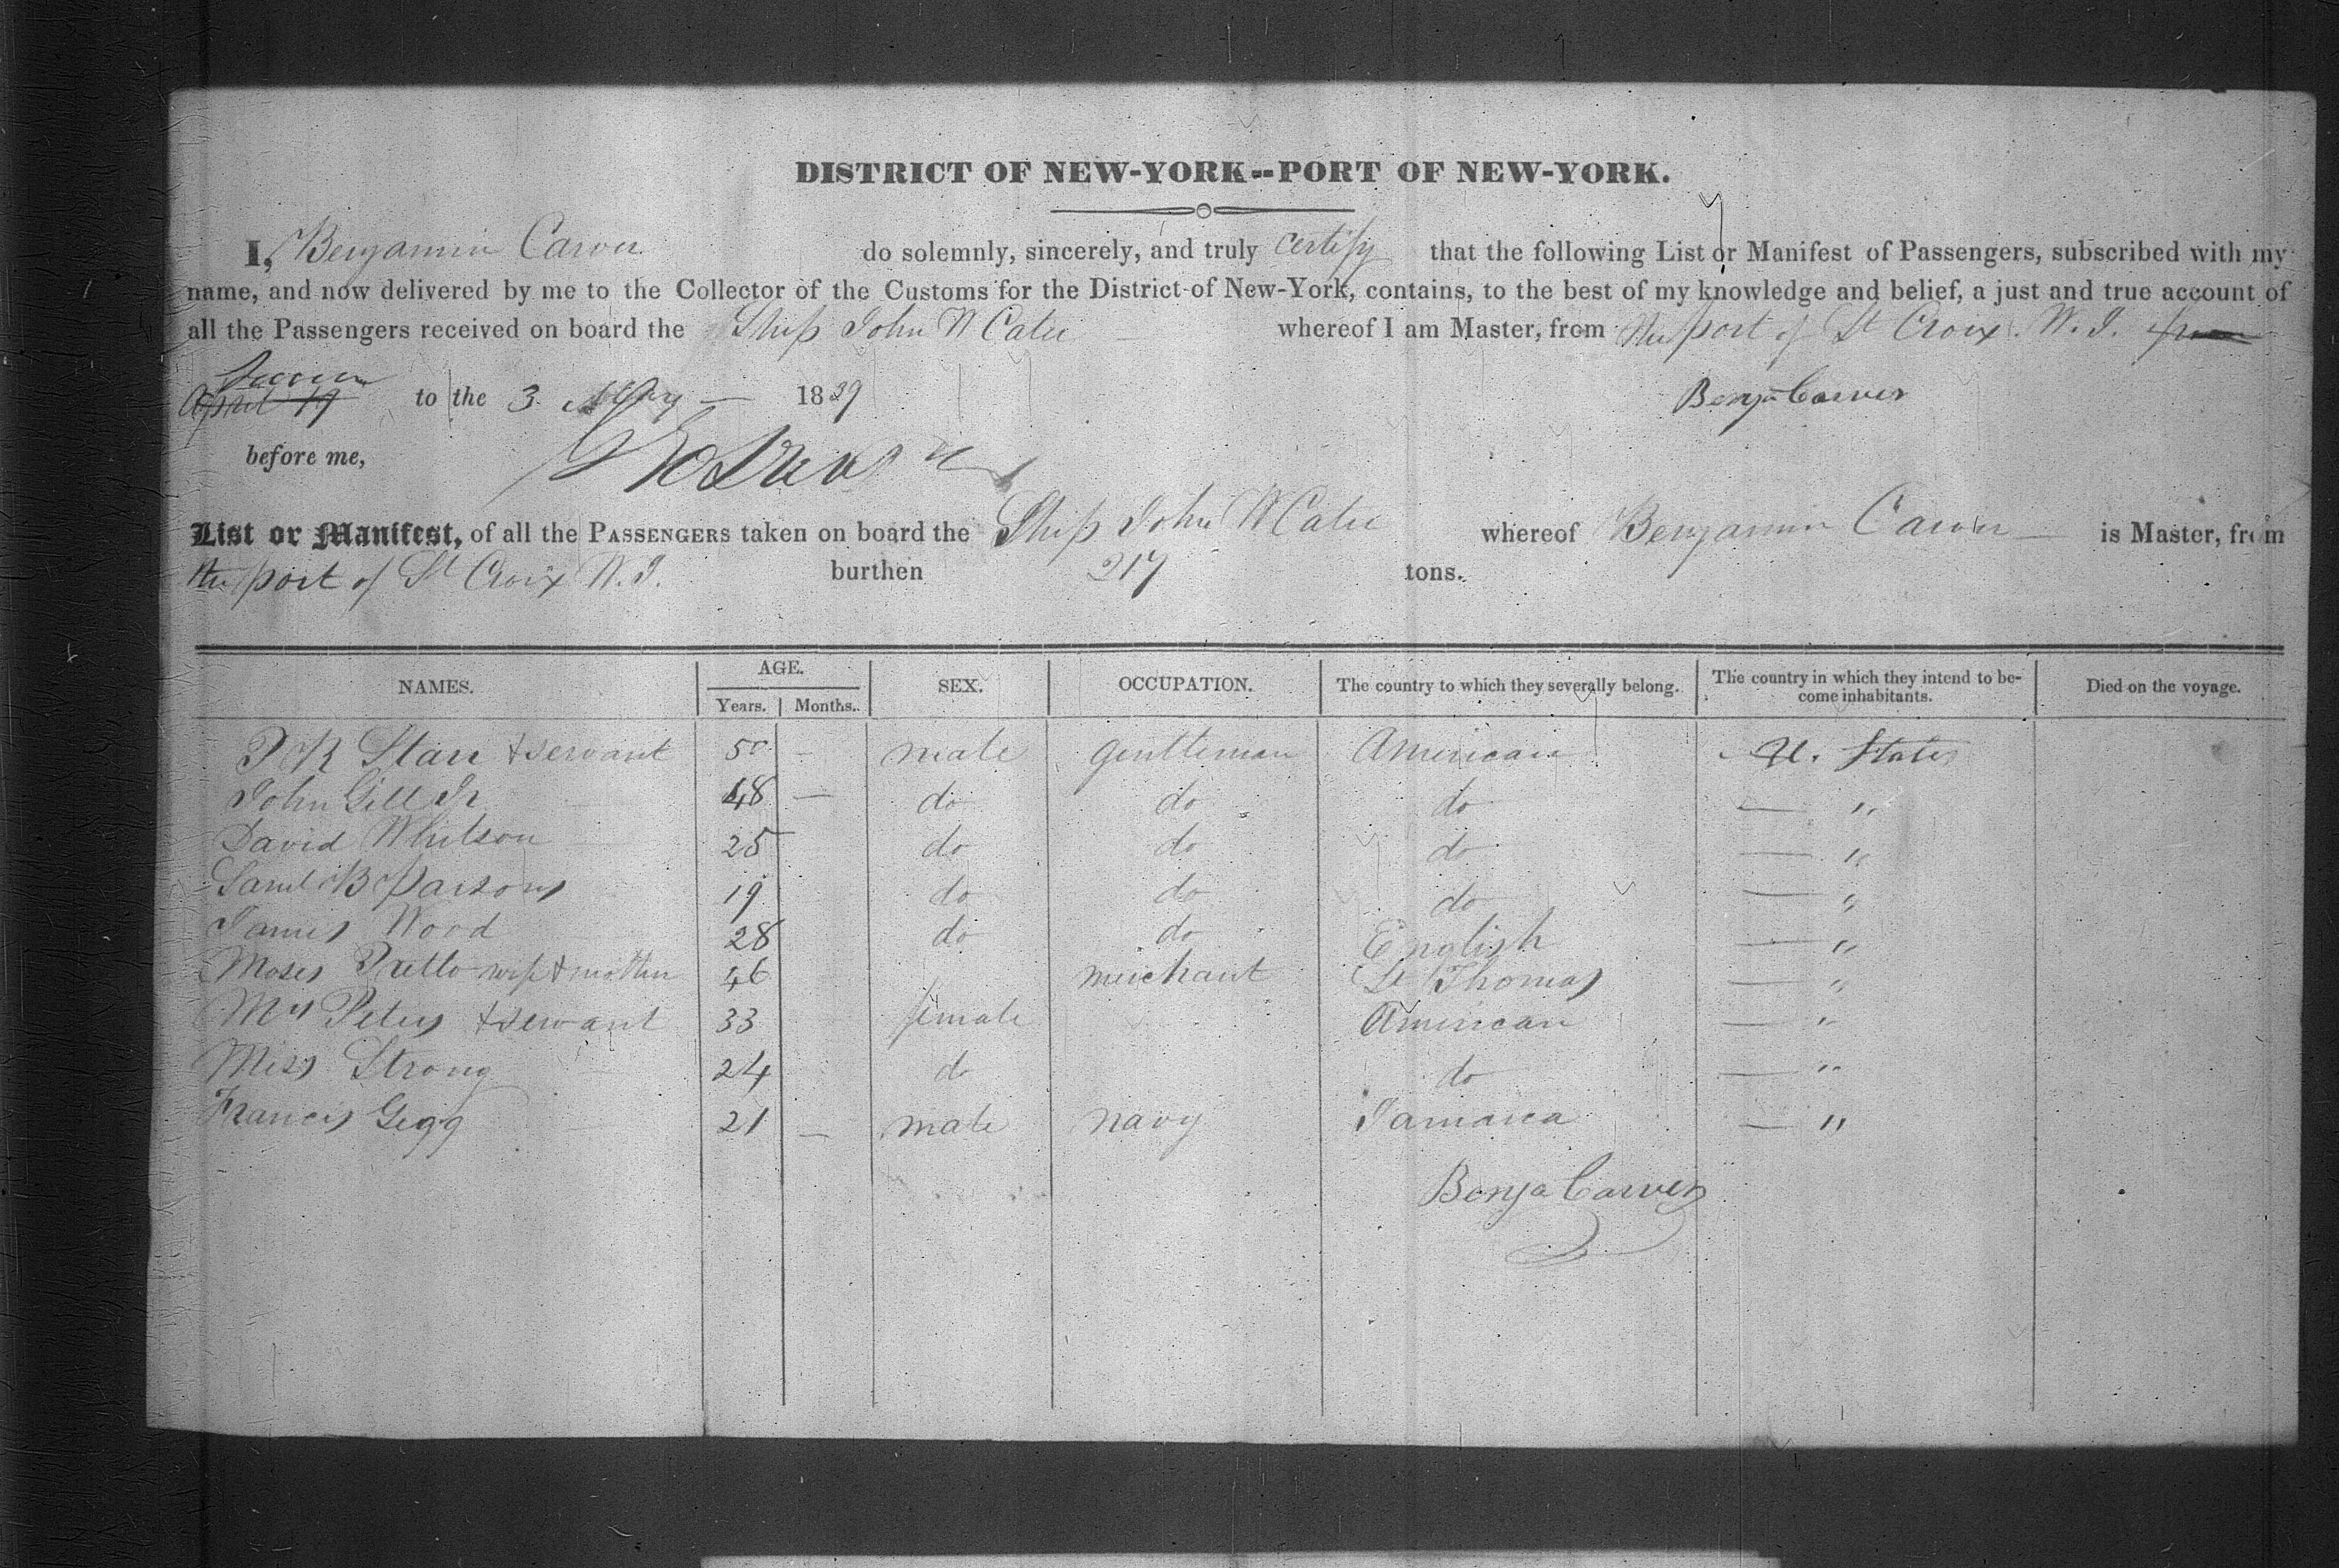 DISTRICT OF NEW-YORK--PORT OF NEW-YORK.
I, Benjamin Carver do solemnly, sincerely, and truly certify that the following List or Manifest of Passengers, subscribed with my
name, and now delivered by me to the Collector of the Customs for the District of New-York, contains, to the best of my knowledge and belief, a just and true account of
all the Passengers received on board the Ship John W Cater whereof I am Master, from the port of St Croix. W. I. from
Sworn
April 19 to the 3 May 1839 Benja Carver
before me,
List or Manifest, of all the PASSENGERS taken on board the Ship John W Cater whereof Benjamin Carver is Master, from
the port of St Croix W. I. burthen 217 tons.
NAMES. AGE. SEX. OCCUPATION. The country to which they severally belong. The country in which they intend to be-come inhabitants. Died on the voyage.
Years. Months.
P R Starr & servant 50 — male gentleman American U. States
John Gill Jr 48 — do do do — "
David Whitson 25 do do do — "
Saml B Parsons 19 do do do — "
James Wood 28 do do English — "
Moses Pretto wife & mother 46 merchant St Thomas — "
Mrs Peters & servant 33 female American — "
Miss Strong 24 do do — "
Francis Gegg 21 — male navy Jamaica — "
Benja Carver